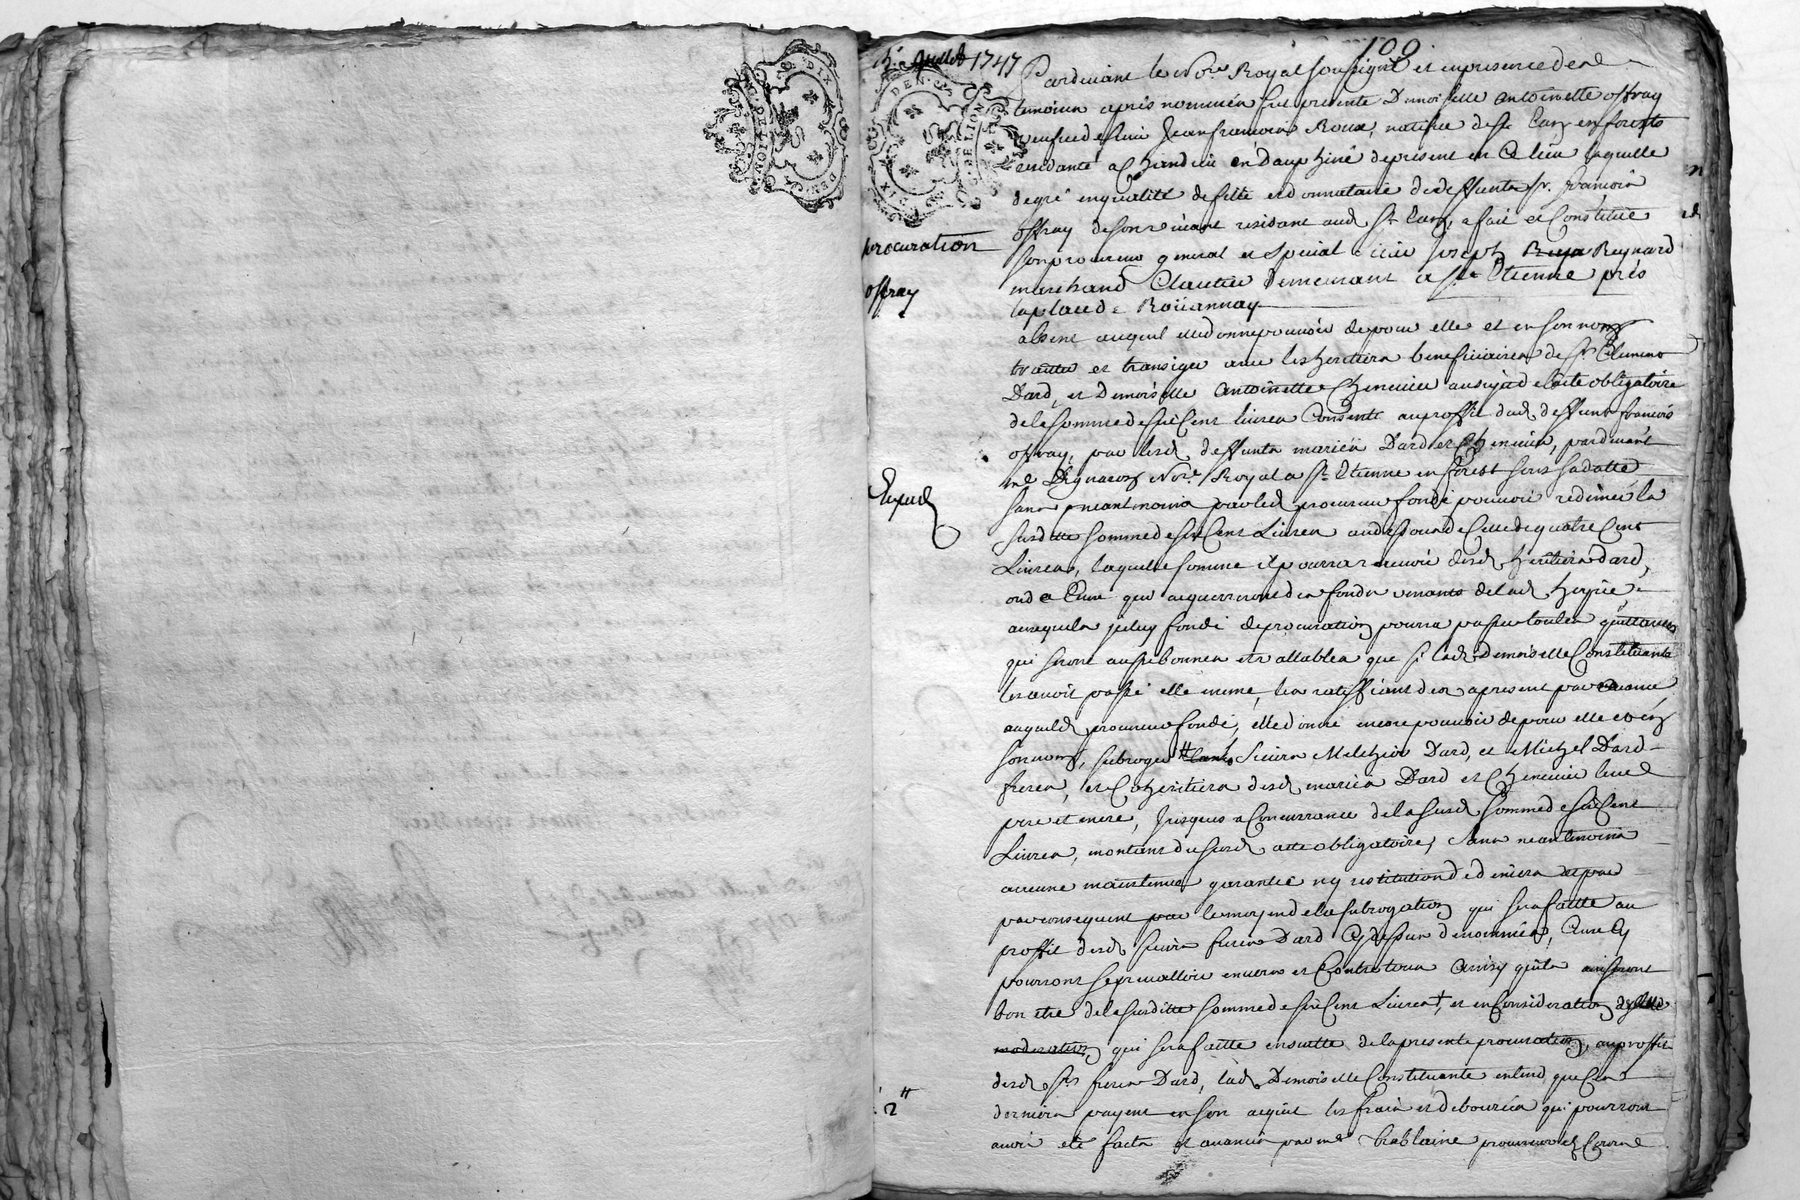 109
Juillet 1747
procuration
offray
Expedié
DEN. GN. DE LION DIX
Pardevant le No.re Royal soussigné et en presence des
temoins apres nommés fut presente Demoiselle antoinette offray
veufve de sieur Jean francois Roux, natifve de st. en forests
residante a en Dauphiné de present en ce lieu laquelle
de gré en qualité de fille et donnataire de deffunt sr. francois
offray de son vivant residant aud. st. a fait et Constitué
son procureur general et special sieur Joseph Reynard
marchand Cloutier demeurant a st. Etienne prés
la place de Roüannay
absent auquel elle donne pouvoir de pour elle et en son nom
traitter et transiger avec les heritiers beneficiaires de sr. Clement
Dard, et Demoiselle antoinette Chenevier au sujet de l'acte obligatoire
de la somme de six Cens livres Consenti au proffit dud. deffunt francois
offray, par lesd. deffunts mariés Dard et Chenevier, pardevant
me. No.re Royal a st. Etienne en forest sous sa datte
sans neantmoins que led. procureur fondé pouvoir redimer la
susditte somme de six Cens Livres au dessous de celle de quatre Cens
Livres, laquelle somme il pourra recevoir desd. heritiers dard,
ou de Ceux qui acquerreront des fonds venants de lad. hoyrie,
auxquels iceluy fondé de procuration pourra passer toutes quittances
qui seront aussi bonnes et vallables que si lad. Demoiselle Constituante
les avoit passé elle meme, les ratiffiant des a present par avance
auquel d. procureur fondé, elle donne encore pouvoir de pour elle et en
son nom, subroger Sieurs Melchior Dard, et Michel Dard
freres, et Coheritiers desd. mariés Dard et Chenevier leurs
pere et mere, Jusques a Concurrance de la susd. somme de six Cens
Livres, montant du susd. acte obligatoire, sans neantmoins
aucune maintenue garantie ny restitution de deniers
par consequent par le moyen de la subrogation qui sera faitte au
proffit desd. sieurs freres Dard Cy dessus denommés, Ceux Cy
pourront se prevalloir envers et Contre tous ainsy qu'ils aviseront
bon etre de la susditte somme de six Cens Livres +, et en Consideration de lad.
moderation qui sera faitte ensuitte de la presente procuration, au proffit
desd. srs. freres Dard, lad. Demoiselle Constituante entend que Ces
derniers payent en son acquit les frais et debourcés qui pourront
avoir eté faits et avancés par me. Trablaine procureur es Cours
2"